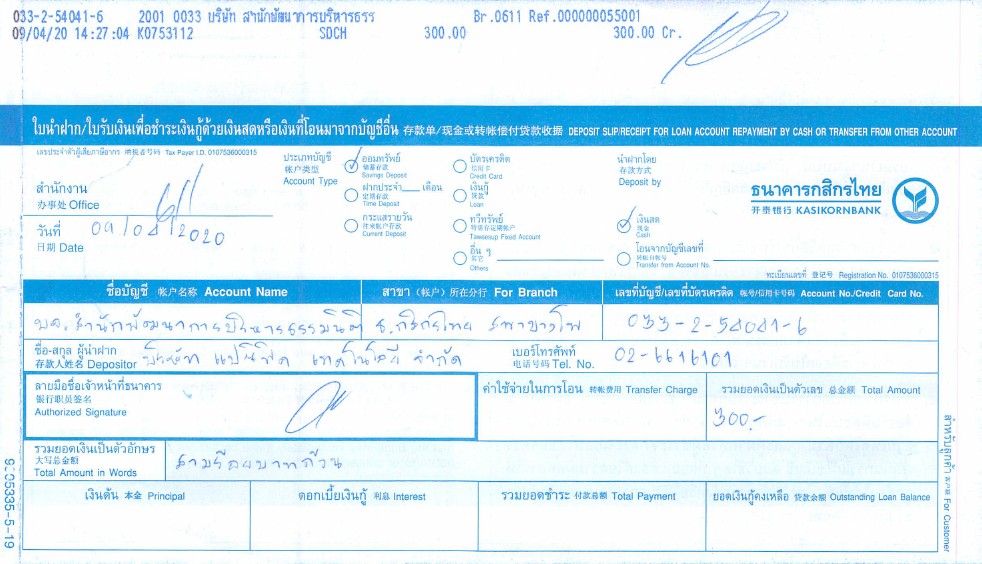 033-2-54041-6 2001 0033 บริษัท สำนักพัฒนาการบริหารธรร Br.0611 Ref.000000055001
09/04/20 14:27:04 K0753112 SDCH 300.00 300.00 Cr.
ใบนำฝาก/ใบรับเงินเพื่อชำระเงินกู้ด้วยเงินสดหรือเงินที่โอนมาจากบัญชีอื่น 存款单/现金或转帐偿付贷款收据 DEPOSIT SLIP/RECEIPT FOR LOAN ACCOUNT REPAYMENT BY CASH OR TRANSFER FROM OTHER ACCOUNT
เลขประจำตัวผู้เสียภาษีอากร 纳税者号码 Tax Payer I.D. 0107536000315
สำนักงาน
办事处 Office
วันที่
日期 Date
09/04/2020
ประเภทบัญชี
帐户类型
Account Type
ออมทรัพย์
储蓄存款
Savings Deposit
ฝากประจำ___เดือน
定期存款
Time Deposit
กระแสรายวัน
往来帐户存款
Current Deposit
บัตรเครดิต
信用卡
Credit Card
เงินกู้
贷款
Loan
ทวีทรัพย์
特惠存定期帐户
Taweesup Fixed Account
อื่น ๆ
其它
Others
นำฝากโดย
存款方式
Deposit by
เงินสด
现金
Cash
โอนจากบัญชีเลขที่
转帐自帐号
Transfer from Account No.
ธนาคารกสิกรไทย
开泰银行 KASIKORNBANK
ทะเบียนเลขที่ 登记号 Registration No. 0107536000315
ชื่อบัญชี 帐户名称 Account Name สาขา (帐户) 所在分行 For Branch เลขที่บัญชี/เลขที่บัตรเครดิต 帐号/信用卡号码 Account No./Credit Card No.
บจ.สำนักพัฒนาการบริหารธรรมนิติ ธ.กสิกรไทย สพานางโพ 033-2-54041-6
ชื่อ-สกุล ผู้นำฝาก
存款人姓名 Depositor
บริษัท เทคโนโลยี จำกัด
เบอร์โทรศัพท์
电话号码 Tel. No.
02-6616101
ลายมือชื่อเจ้าหน้าที่ธนาคาร
银行职员签名
Authorized Signature
ค่าใช้จ่ายในการโอน 转帐费用 Transfer Charge
รวมยอดเงินเป็นตัวเลข 总金额 Total Amount
300.-
รวมยอดเงินเป็นตัวอักษร
大写总金额
Total Amount in Words
สามร้อยบาทถ้วน
เงินต้น 本金 Principal ดอกเบี้ยเงินกู้ 利息 Interest รวมยอดชำระ 付款总额 Total Payment ยอดเงินกู้คงเหลือ 贷款余额 Outstanding Loan Balance
สำหรับลูกค้า 客户联 For Customer